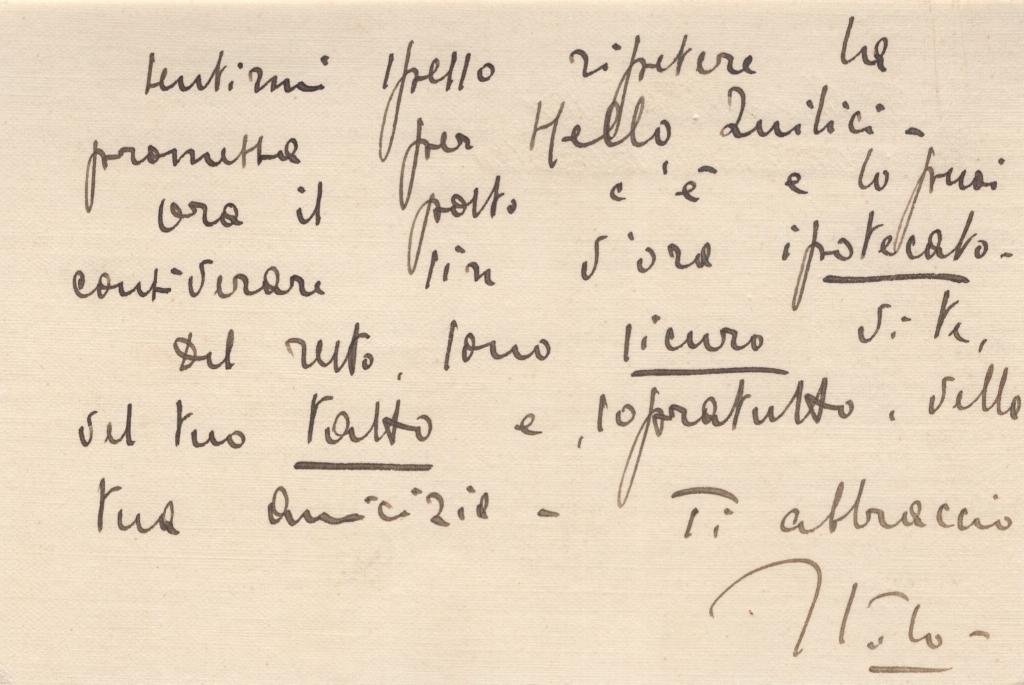 sentirmi spesso ripetere la
promessa per Nello Quilici -
ora il posto c'è e lo puoi
considerare sin d'ora ipotecato -
Del resto, sono sicuro di te,
del tuo tatto e, sopratutto, della
tua amicizia - Ti abbraccio
Italo -